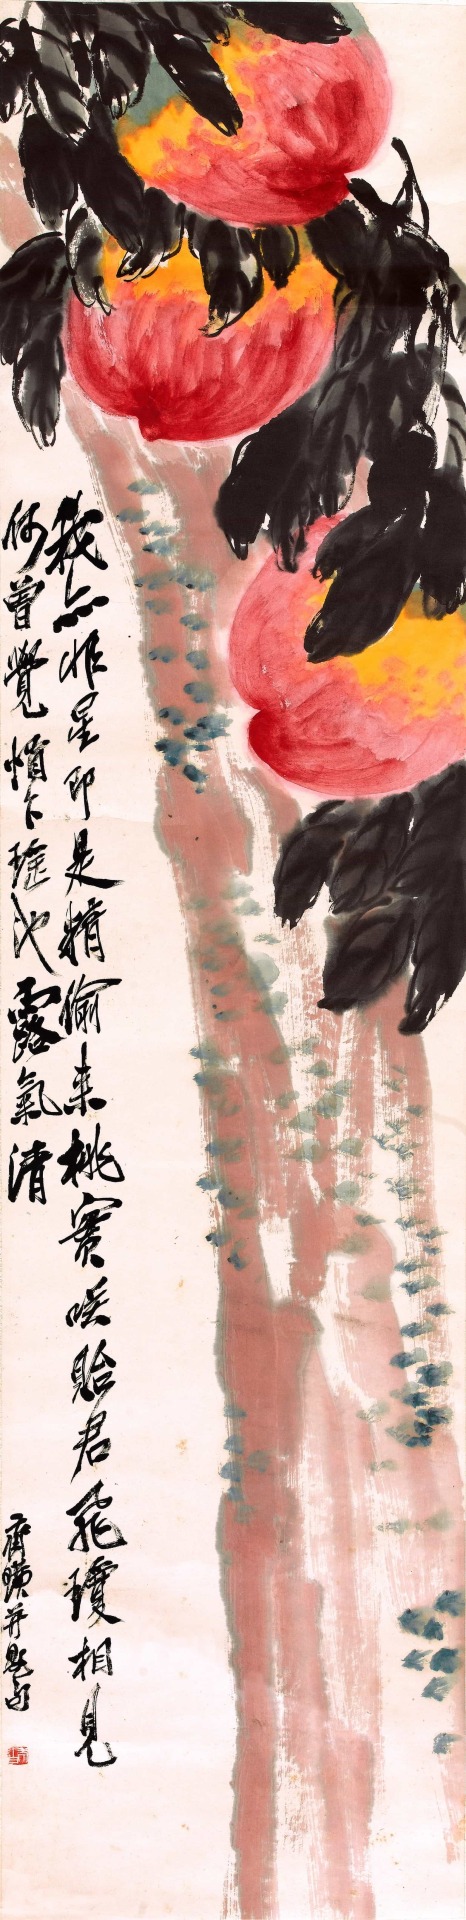 我亦非星即是精偷来桃實咲贻君飛瓊相見
何曾覺悄下瑶池露氣清
齊璜并題句